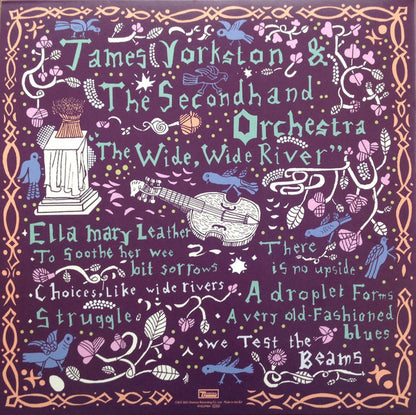 James Yorkston &
The Secondhand
Orchestra
"The Wide, Wide River"
Ella Mary Leather
To Soothe her wee
bit sorrows
Choices, Like wide rivers
Struggle
There
is no upside
A droplet Forms
A very old-Fashioned
blues
We Test the
Beams
Domino